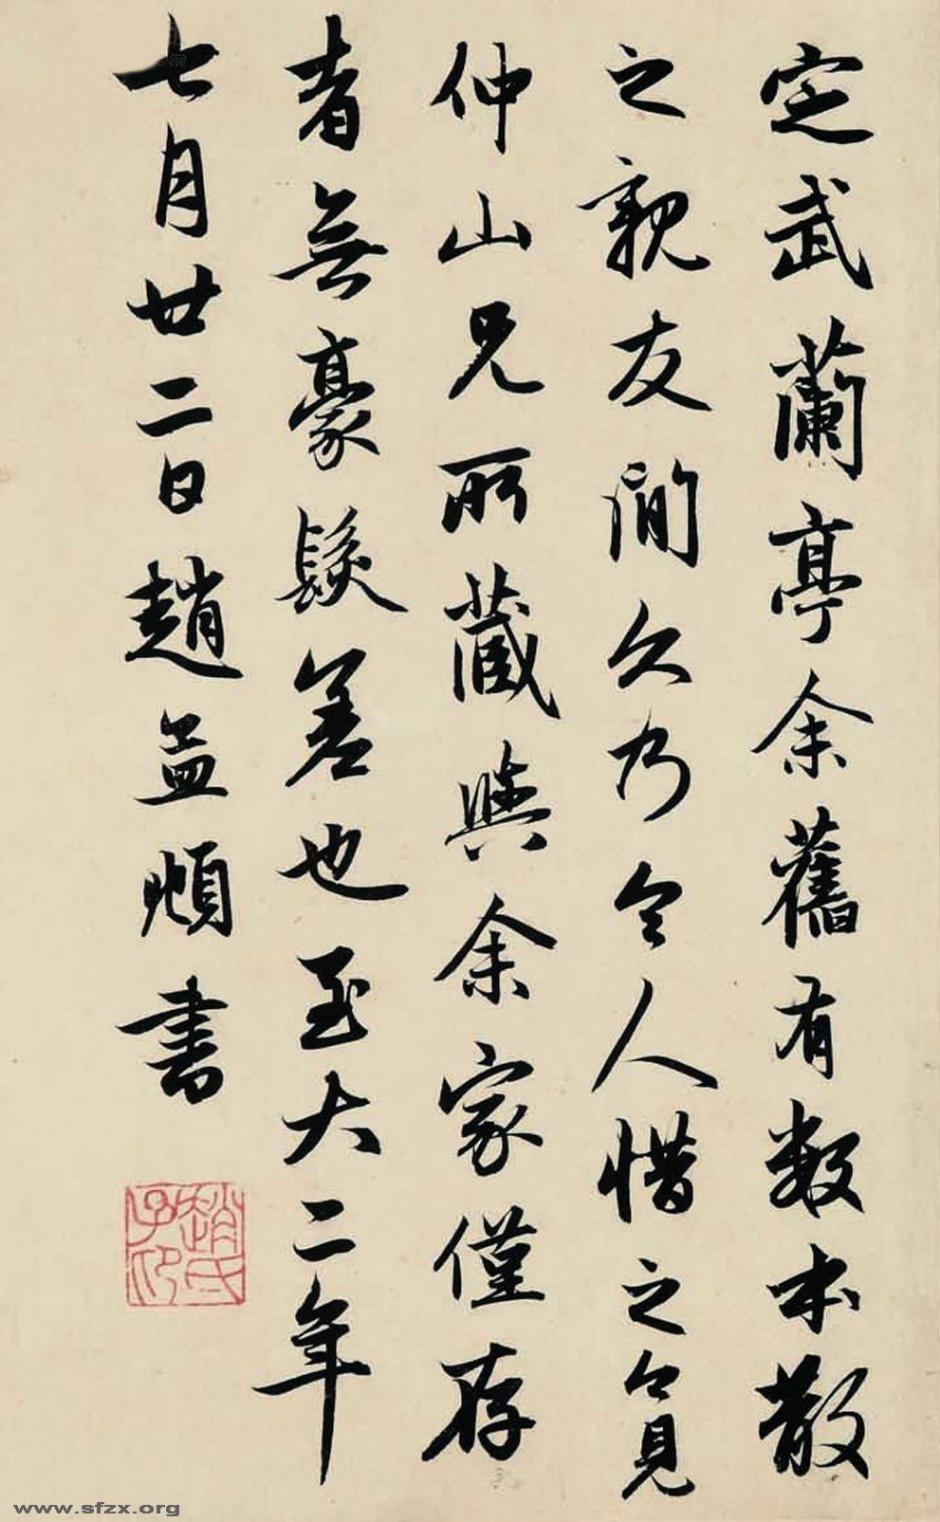 定武蘭亭余舊有數本散
之親友間久乃令人惜之今見
仲山兄所藏與余家僅存
者無豪髮差也至大二年
七月廿二日趙孟頫書
趙氏子印
www.sfzx.org